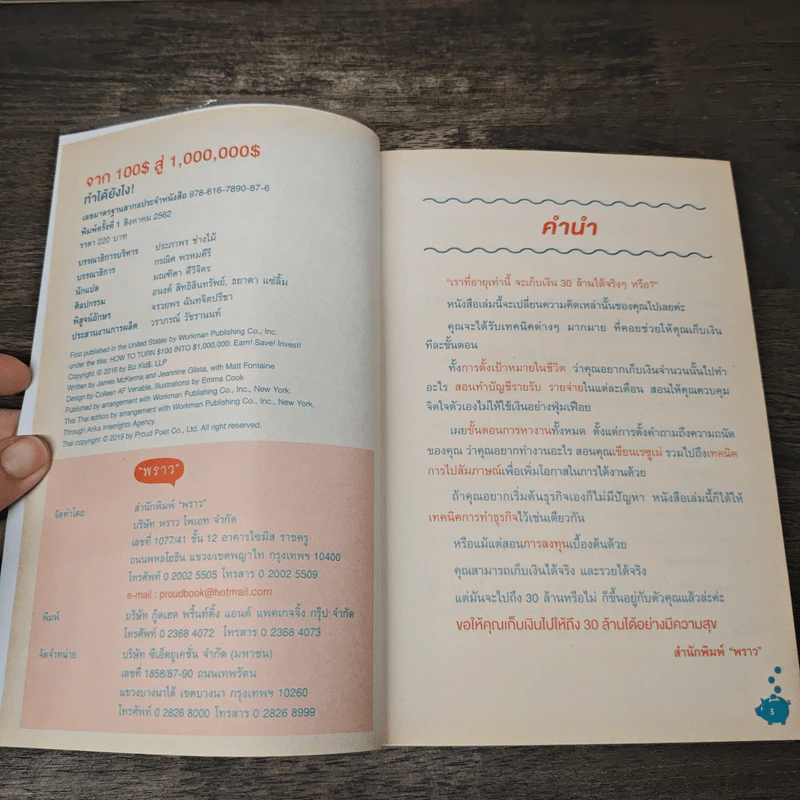 จาก 100$ สู่ 1,000,000$
ทำได้ยังไง!
เลขมาตรฐานสากลประจำหนังสือ 978-616-7890-87-6
พิมพ์ครั้งที่ 1 สิงหาคม 2562
ราคา 220 บาท
บรรณาธิการบริหาร ประภาพร ช่างไม้
บรรณาธิการ กรณิศ พรหมคีรี
นักแปล มณฑิตา ดีวิจิตร
ศิลปกรรม อนงค์ สิทธิสินทรัพย์, ชยาดา แซ่ลิ้ม
พิสูจน์อักษร จรวยพร ฉันทจิตปรีชา
ประสานงานการผลิต วราภรณ์ วัชรานนท์
First published in the United States by Workman Publishing Co., Inc.
under the title: HOW TO TURN $100 INTO $1,000,000: Earn! Save! Invest!
Copyright © 2016 by Biz Kid$. LLP
Written by James McKenna and Jeannine Glista, with Matt Fontaine
Design by Colleen AF Venable, Illustrations by Emma Cook
Published by arrangement with Workman Publishing Co., Inc., New York.
This Thai edition by arrangement with Workman Publishing Co., Inc., New York.
Through Arika Interrights Agency.
Thai copyright © 2019 by Proud Poet Co., Ltd. All right reserved.
"พราว"
จัดทำโดย สำนักพิมพ์ "พราว"
บริษัท พราว โพเอท จำกัด
เลขที่ 1077/41 ชั้น 12 อาคารไซมิส ราชครู
ถนนพหลโยธิน แขวง/เขตพญาไท กรุงเทพฯ 10400
โทรศัพท์ 0 2002 5505 โทรสาร 0 2002 5509
e-mail : proudbook@hotmail.com
พิมพ์ บริษัท กู๊ดเฮด พริ้นท์ติ้ง แอนด์ แพคเกจจิ้ง กรุ๊ป จำกัด
โทรศัพท์ 0 2368 4072 โทรสาร 0 2368 4073
จัดจำหน่าย บริษัท ซีเอ็ดยูเคชั่น จำกัด (มหาชน)
เลขที่ 1858/87-90 ถนนเทพรัตน
แขวงบางนาใต้ เขตบางนา กรุงเทพฯ 10260
โทรศัพท์ 0 2826 8000 โทรสาร 0 2826 8999
คำนำ
"เราที่อายุเท่านี้ จะเก็บเงิน 30 ล้านได้จริงๆ หรือ?"
หนังสือเล่มนี้จะเปลี่ยนความคิดเหล่านั้นของคุณไปเลยค่ะ
คุณจะได้รับเทคนิคต่างๆ มากมาย ที่คอยช่วยให้คุณเก็บเงิน
ทีละขั้นตอน
ทั้งการตั้งเป้าหมายในชีวิต ว่าคุณอยากเก็บเงินจำนวนนั้นไปทำ
อะไร สอนทำบัญชีรายรับ รายจ่ายในแต่ละเดือน สอนให้คุณควบคุม
จิตใจตัวเองไม่ให้ใช้เงินอย่างฟุ่มเฟือย
เผยขั้นตอนการหางานทั้งหมด ตั้งแต่การตั้งคำถามถึงความถนัด
ของคุณ ว่าคุณอยากทำงานอะไร สอนคุณเขียนเรซูเม่ รวมไปถึงเทคนิค
การไปสัมภาษณ์เพื่อเพิ่มโอกาสในการได้งานด้วย
ถ้าคุณอยากเริ่มต้นธุรกิจเองก็ไม่มีปัญหา หนังสือเล่มนี้ก็ได้ให้
เทคนิคการทำธุรกิจไว้เช่นเดียวกัน
หรือแม้แต่สอนการลงทุนเบื้องต้นด้วย
คุณสามารถเก็บเงินได้จริง และรวยได้จริง
แต่มันจะไปถึง 30 ล้านหรือไม่ ก็ขึ้นอยู่กับตัวคุณแล้วล่ะค่ะ
ขอให้คุณเก็บเงินไปให้ถึง 30 ล้านได้อย่างมีความสุข
สำนักพิมพ์ "พราว"
3